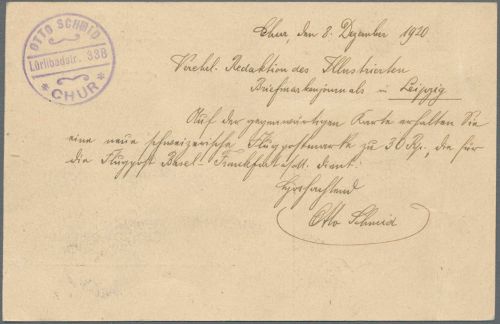 OTTO SCHMID
Lürlibadstr. 338
* CHUR *
Chur, den 8. Dezember 1920
Verehrl. Redaktion des Illustrierten
Briefmarkenjournals in Leipzig
Auf der gegenwärtigen Karte erhalten Sie
eine neue schweizerische Flugpostmarke zu 30 Rp., die für
die Flugpost Basel-Frankfurt dient.
Hochachtend
Otto Schmid